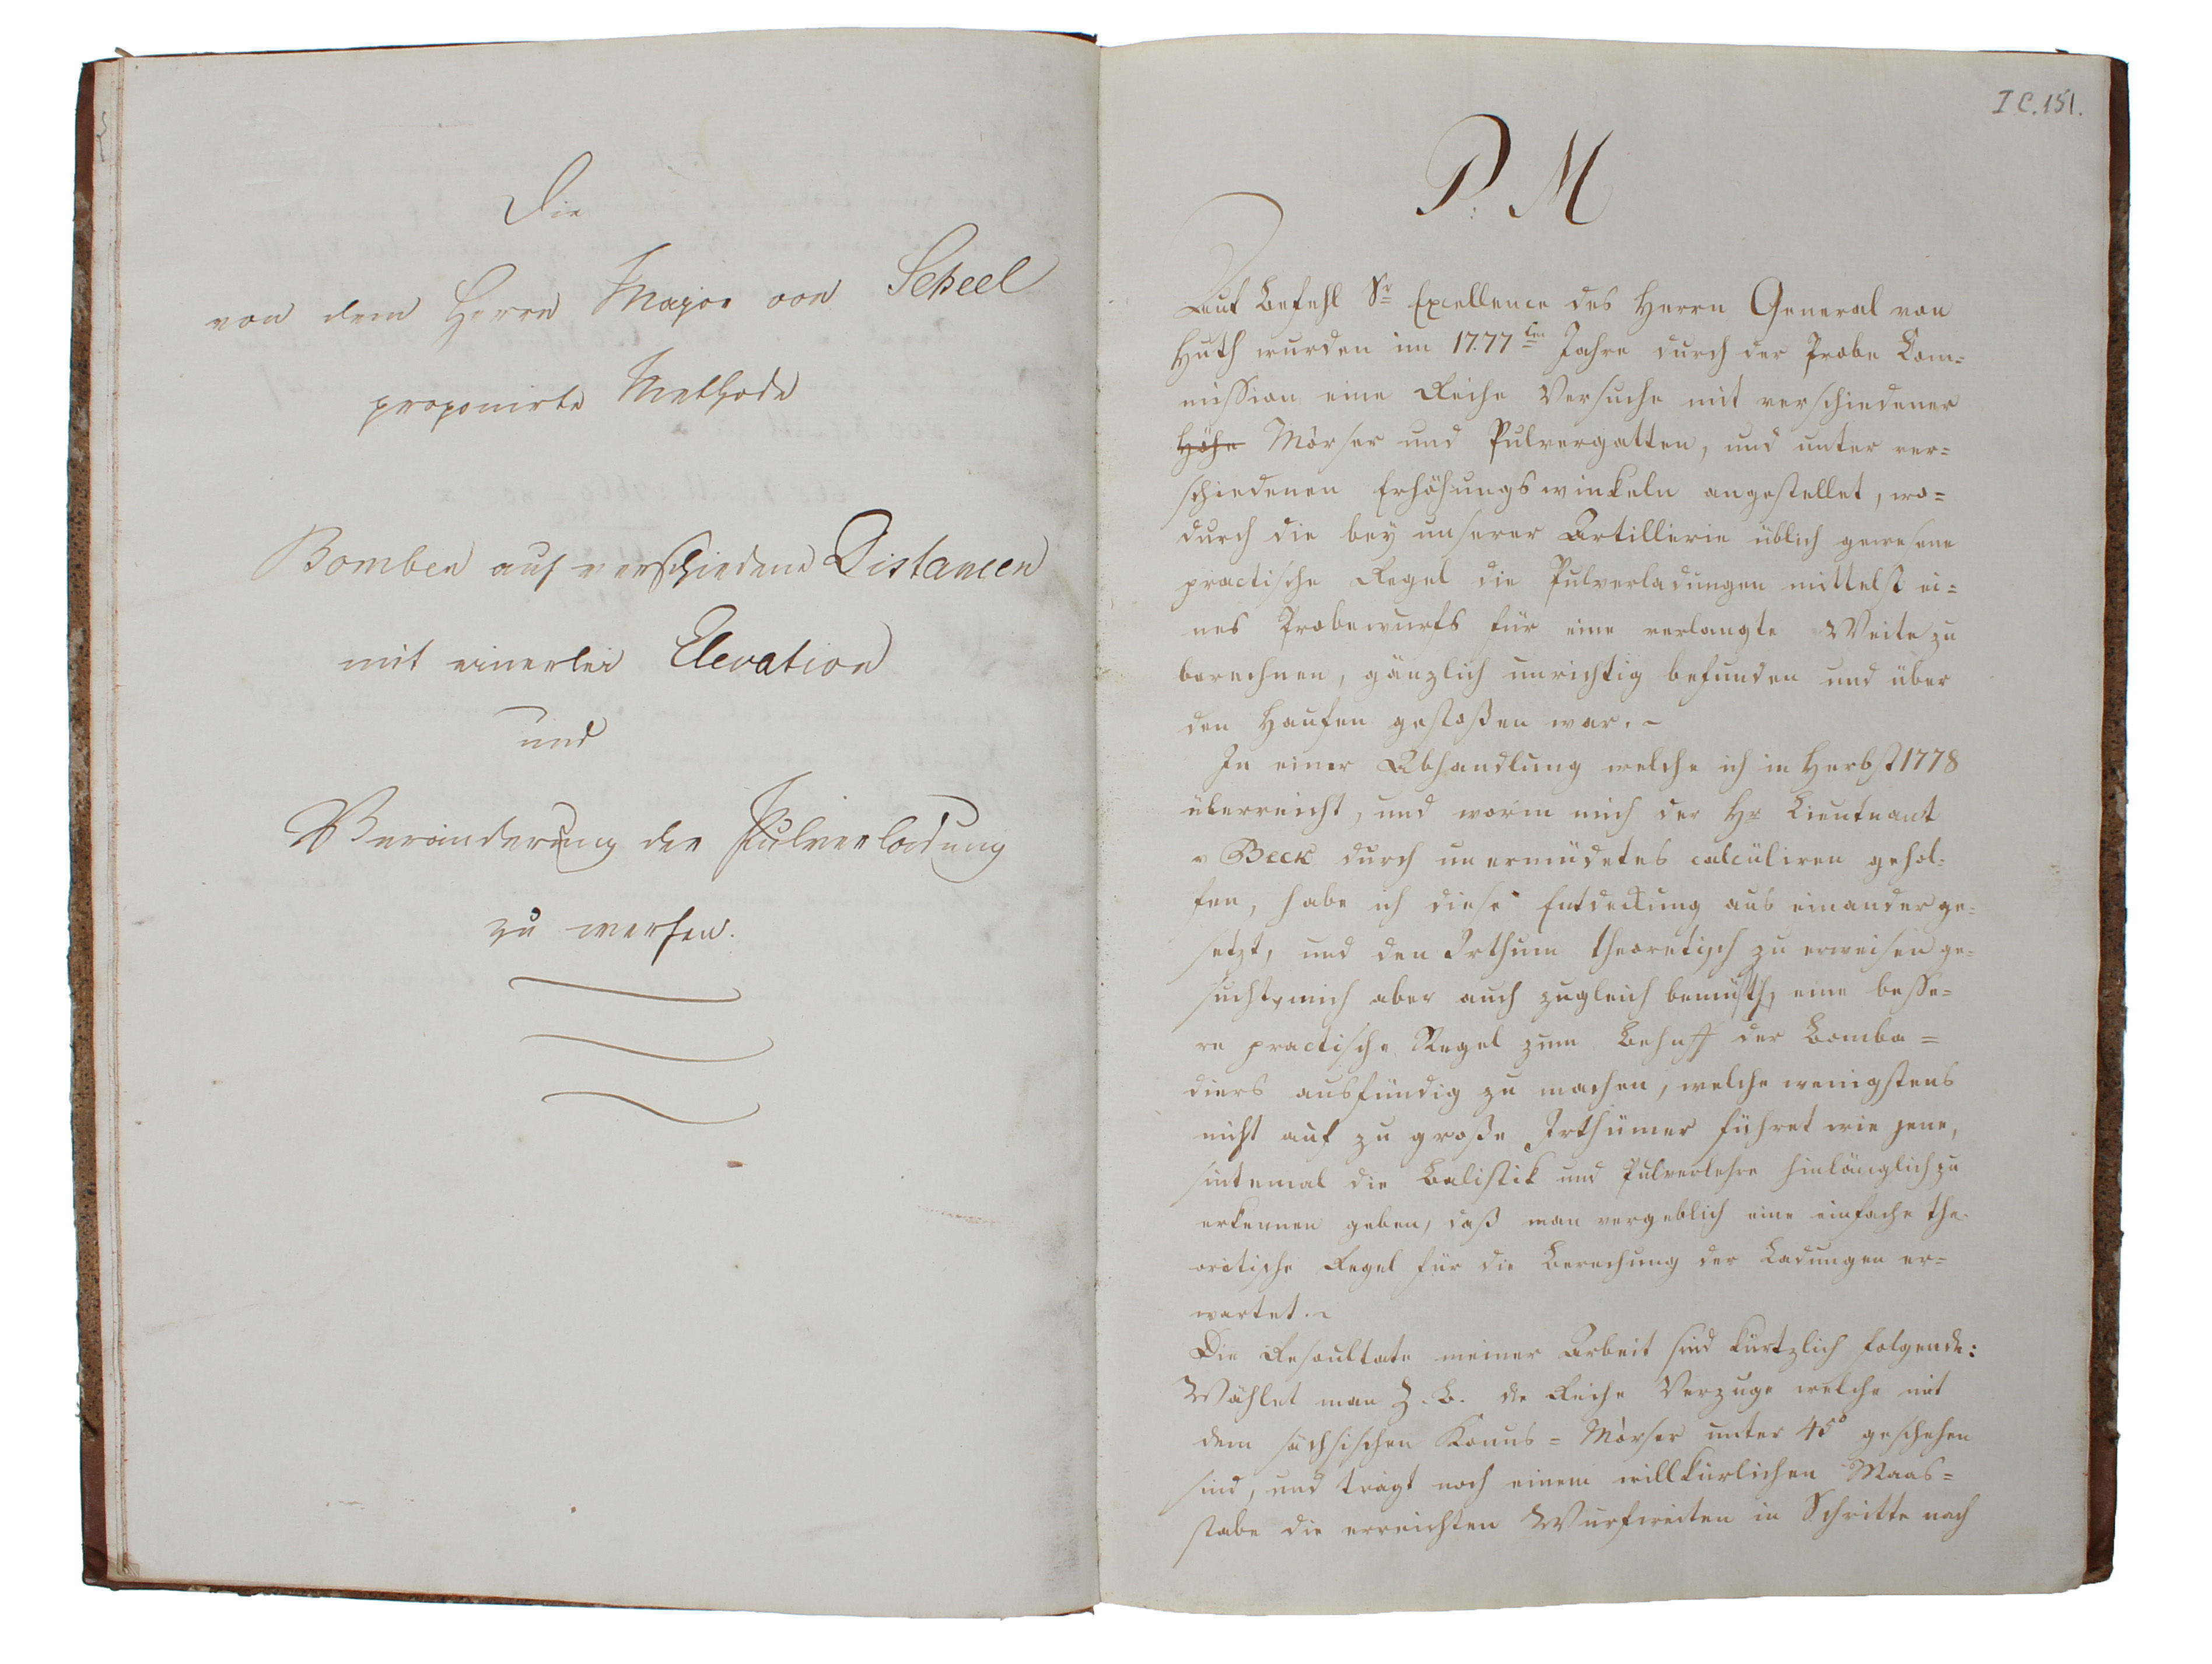 Die
von dem Herrn Major von Scheel
proponirte Methode
Bomben auf verschiedene Distancen
mit einerlei Elevation
und
Veränderung der Pulverladung
zu werfen.
I C. 151.
P. M
Auf Befehl Sr Excellence des Herrn General von
Huth wurden im 1777ten Jahre durch der Probe Com=
mission eine Reihe Versuche mit verschiedener
Höhe Mörser und Pulvergatten, und unter ver=
schiedenen Erhöhungswinkeln angestellet, wo=
durch die bey unserer Artillerie üblich gewesene
practische Regel die Pulverladungen mittelst ei=
nes Probewurfs für eine verlangte Weite zu
berechnen, gänzlich unrichtig befunden und über
den Haufen gestoßen war. –
In einer Abhandlung welche ich in Herbst 1778
überreicht, und worin mich der Hr Lieutnant
v Beck durch unermüdetes calcüliren gehol=
fen, habe ich diese Entdeckung aus einander ge=
setzt, und den Irthum theoretisch zu erweisen ge=
sucht, mich aber auch zugleich bemüht, eine besse=
re practische Regel zum Behuff der Bomba=
diers ausfündig zu machen, welche wenigstens
nicht auf zu große Irthümer führet wie jene,
sintemal die Balistik und Pulverlehre hinlänglich zu
erkennen geben, daß man vergeblich eine einfache the=
oritische Regel für die Berechung der Ladungen er=
wartet. –
Die Resoultate meiner Arbeit sind kürtzlich folgende:
Wählet man Z. B. de Reihe Verzuge welche mit
dem sächsischen Konus = Mörser unter 45° geschehen
sind, und trägt noch einem willkürlichen Maas=
stabe die erreichten Wurfweiten in Schritte nach